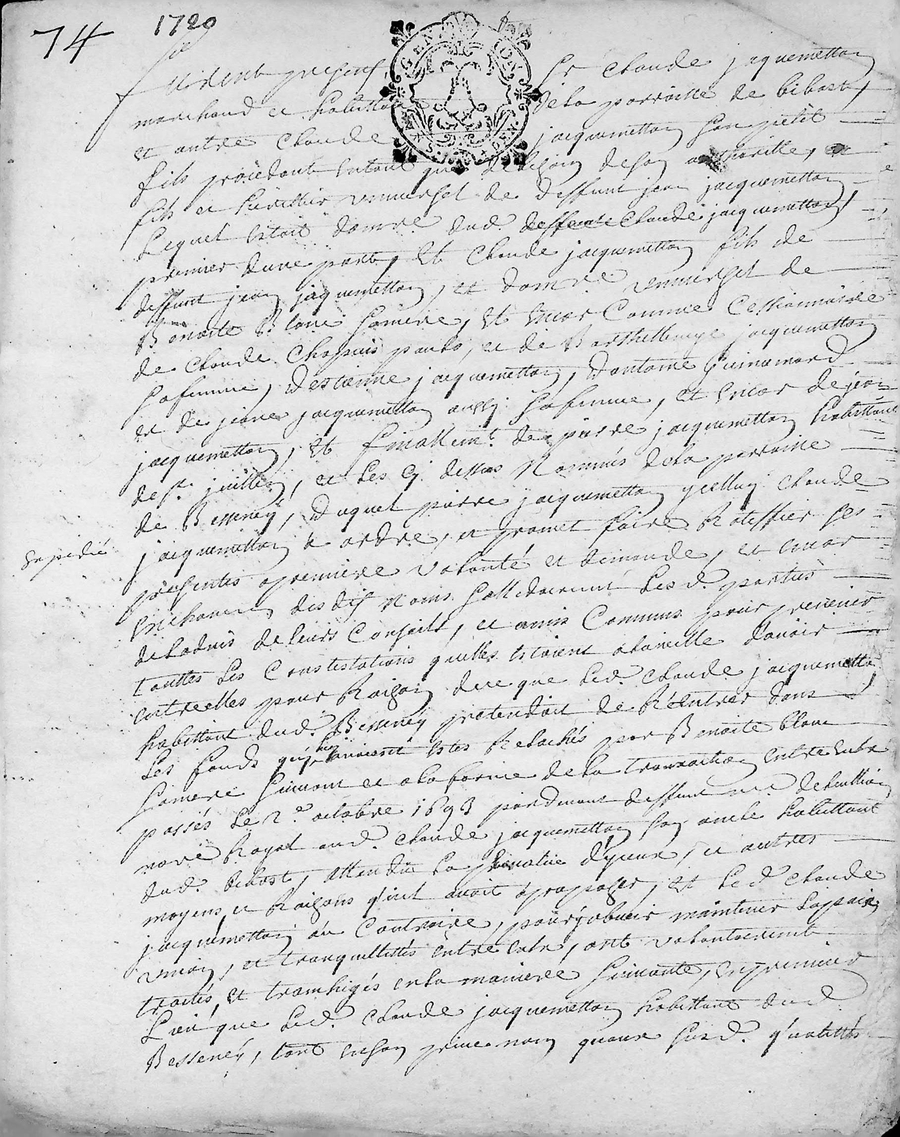 74
1720
GEN ION
Furent presens Sr Claude jacquemetton
marchand et habittant de la parroisse de bibost,
et autre Claude jacquemetton son petit
fils procedant entant que de besoin de son authorité, et
fils et herittier universel de deffunt jean jacquemetton
lequel estoit donnre dud deffunt Claude jacquemetton,
premier dune part, Et Claude jacquemetton fils de
deffunt jean jacquemetton, et donnre universel de
Benoite Blanc sa mere, Et encor comme Cessionnaire
de Claude Chapuis et de Barthellemye jacquemetton
sa femme, destienne jacquemetton, dantoine Guinamard
et de jeane jacquemetton aussy sa femme, Et encor de jean
jacquemetton, Et finallemt. de pierre jacquemetton habittant
de st. juillien, et les cy dessus Nommés de la parroisse
de Besseney, Duquel pierre jacquemetton yceluy Claude
jacquemetton a ordre, et promet faire Ratiffier ces
presentes a premiere volonté et demande, et encor
Expedié
en chacun desdis noms sollidairemt Lesd. parties
de ladvis de leurs Conseils, et amis Communs pour prevenir
touttes les Contestations quelles estoient a la veille davoir
entre elles pour Raison de ce que led. Claude jacquemetton
habittant dud. Besseney pretendoit de Réentrer dans
Les fonds quy avoient estés Relachés par Benoite blanc
sa mere suivant et a la forme de la transaction entre eux
passés le 2e. octobre 1693 pardevant deffunt me
nore Royal aud. Claude jacquemetton son oncle habittant
dud. bibost, attendu la d'yceux, et autres
moyens et Raisons quil avoit a proposer, Et led Claude
jacquemetton au Contraire, pour maintenir la paix
union, et tranquillités entre eux, ont volontairemt
traités, et transhigés en la maniere suivante, En premier
Lieu que led. Claude jacquemetton habittant dud
Besseney, tant en son prive nom quaux susd. quallités